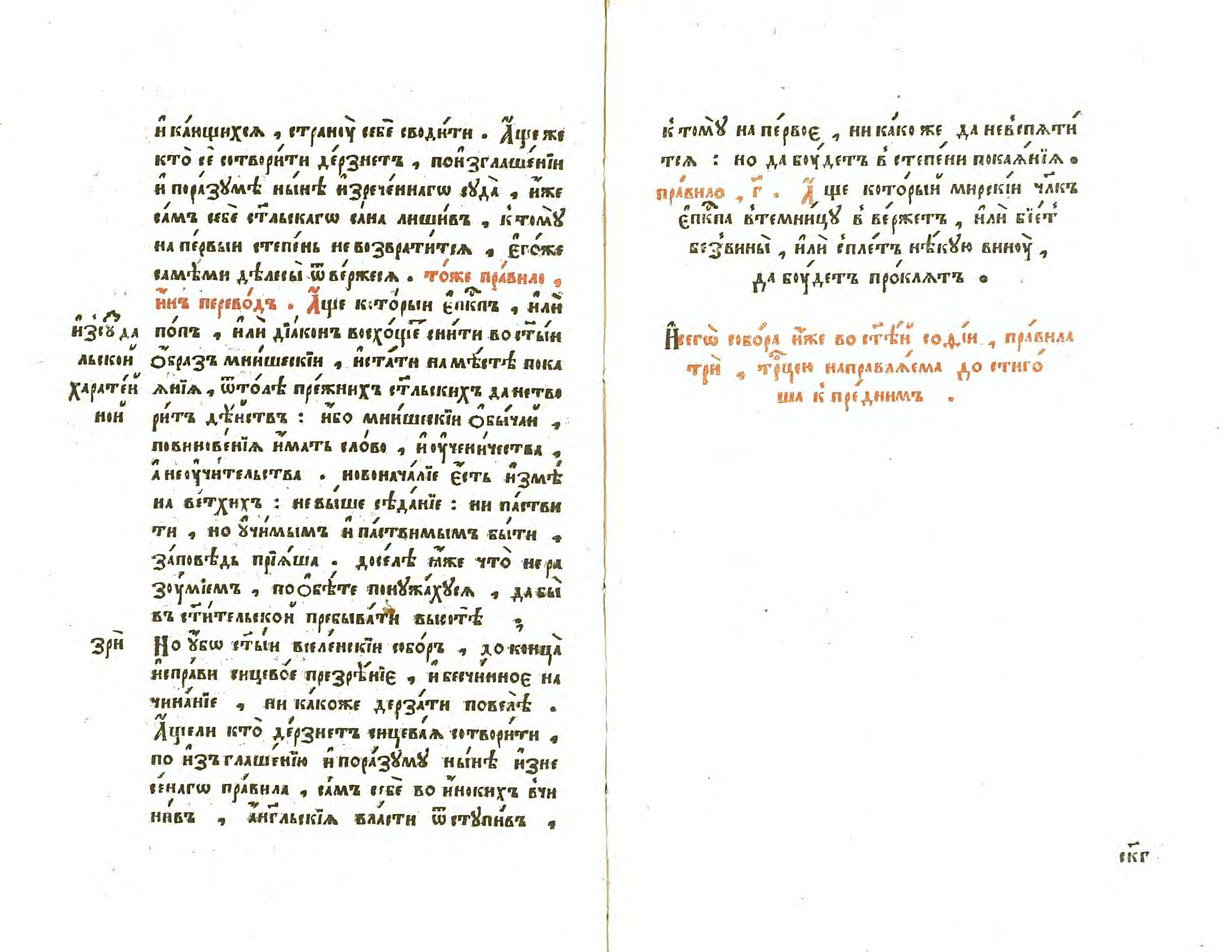 и҆ ка́ющихсѧ , странꙋ̀ себѐ сводѝти . А҆́ще же
кто̀ сѐ сотвори́ти де́рзнетъ , поизглаше́нїи
и҆ поразꙋмѣ̀ ны́нѣ и҆зрече́ннагѡ сꙋда̀ , и҆́же
са́мъ себѐ ст҃льскагѡ са́на лиши́въ , к томꙋ̀
на пе́рвыи степе́нь не возврати́тсѧ , є҆го́же
самѣ́ми дѣлесы̀ ѿве́ржесѧ . то́же пра́вило ,
и҆́нъ перево́дъ . А҆́ще который є҆пи́кпъ , и҆лѝ
и҆з сꙋда
по́пъ , и҆лѝ дїа́конъ восхо́щетъ сни́ти во ст҃ы́и
льской
ѻ҆́бразъ мни́шескїи , и҆ста́ти на мѣ́стѣ пока
харатей
ѧ́нїѧ , ѿто́лѣ пре́жнихъ ст҃льскихъ да не тво
ной
ри́тъ дѣ́иствъ : и҆́бо мни́шескїи ѻ҆бы́чай ,
повинове́нїѧ и҆́мать сло́во , и҆ оу҆чени́чества ,
а҆ не оу҆чи́тельства . новонача́лїе є҆́сть и҆змѣ̀
на ве́тхихъ : не вы́ше сѣда́нїе : ни па́стви
ти , но ꙋ҆чи́мымъ и҆ па́ствимымъ бы́ти ,
за́повѣдь прїѧ́ша . досе́лѣ ꙗ҆́же что̀ не ра
зоꙋмі́емъ , по ѻ҆бѣ́те понꙋжа́хꙋсѧ , да бы̀
въ ст҃и́тельской пребыва́ти высотѣ̀ ;
зрѝ
Но ꙋ҆́бѡ ст҃ы́и вселе́нскїи собо́ръ , до конца̀
и҆спра́ви сицево́е презрѣ́нїє , и҆ бесчи́нноє на
чина́нїе , ни ка́коже дерза́ти повелѣ̀ .
А҆́щели кто̀ де́рзнетъ сицева́ѧ сотвори́ти ,
по и҆зъглаше́нїю и҆ пора́зꙋмꙋ ны́нѣ и҆зне
се́нагѡ пра́вила , са́мъ себѐ во и҆́нокихъ вчи
ни́въ , а҆́нг҃льскїѧ вла́сти ѿстꙋпи́въ ,
к томꙋ̀ на пе́рвоє , ни како же да не вспѧти́
тсѧ : но да боу́детъ в степе́ни покаѧ́нїѧ .
пра́вило , г҃ . А҆́ще кото́рый мирскі́и чл҃къ
є҆пи́кпа в темни́цꙋ в ве́ржетъ , и҆лѝ бїе́тъ
без вины̀ , и҆лѝ сплетъ нѣ́кꙋю винꙋ̀ ,
да боу́детъ про́клѧтъ .
И҆ сегѡ̀ собо́ра и҆́же во ст҃ѣ́й софі́и , пра́вила
трѝ , тр҃цею направлѧ́ема до стиго́
ша к пре́днимъ .
ск҃г